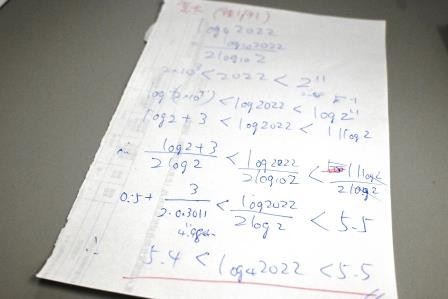 log₄2022
= log₁₀2022 / 2log₁₀2
2×10³ < 2022 < 2¹¹
log(2×10³) < log2022 < log2¹¹
log2+3 < log2022 < 11log2
∴ (log2+3)/(2log2) < log2022/(2log₁₀2) < 11log2/(2log2)
0.5+ 3/(2·0.3011) < log2022/(2log2) < 5.5
∴ 5.4 < log₄2022 < 5.5